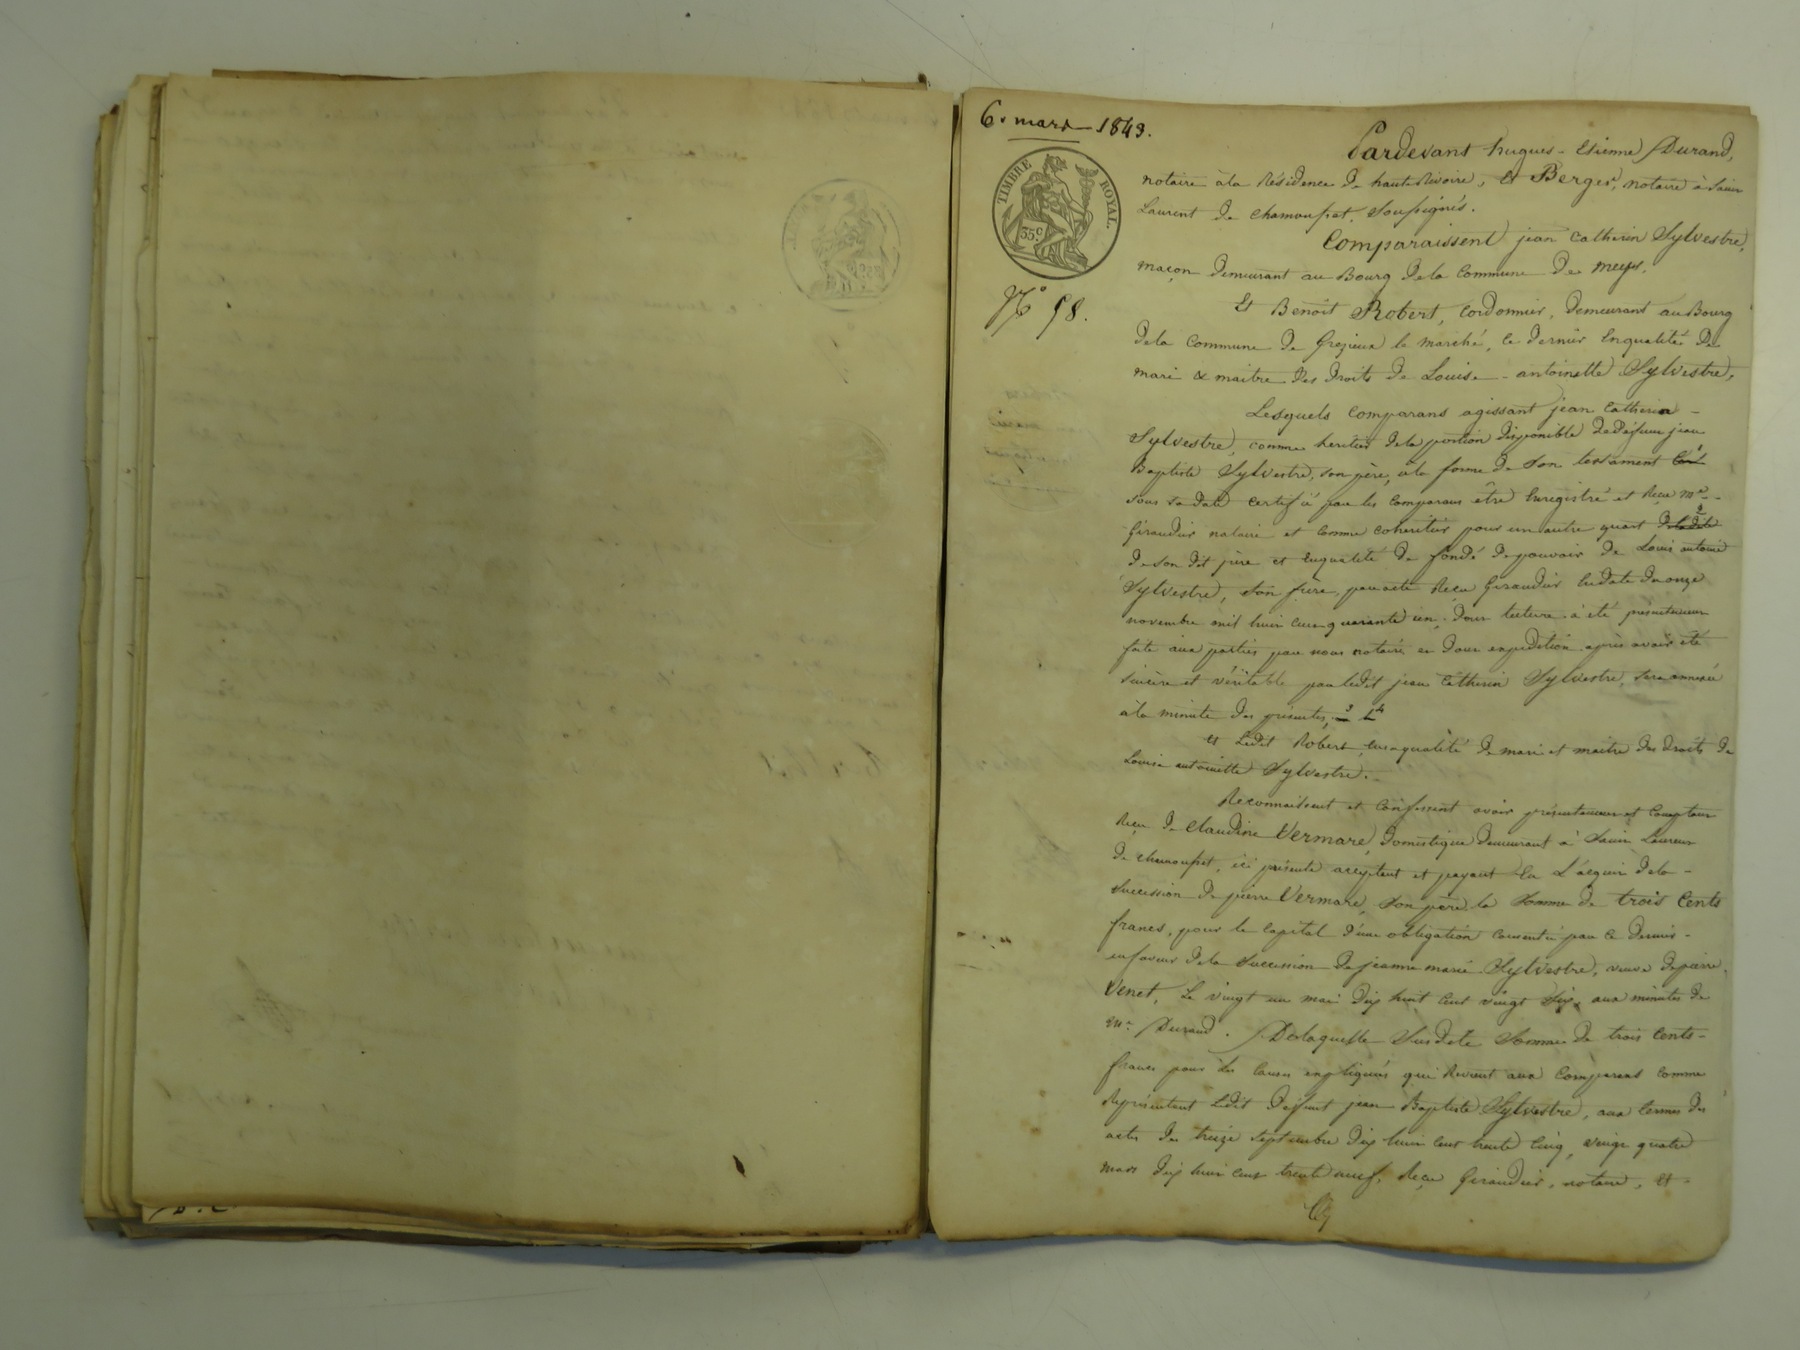 6. mars 1843.
TIMBRE ROYAL.
35 c
N.º 98.
Pardevant hugues-Etienne Durand,
notaire à la Résidence de hauteRivoire, Et Berger, notaire à Saint
Laurent de chamousset, Soussignés.
Comparaissent jean Catherin Sylvestre,
maçon demeurant au Bourg de la Commune de meys.
Et Benoit Robert, Cordonnier, demeurant au Bourg
de la Commune de Grezieux le marché, ce dernier En qualité de
mari & maitre des droits de Louise-antoinette Sylvestre,
Lesquels Comparans agissant jean Catherin
Sylvestre, comme heritier de la portion disponible de défunt jean
Baptiste Sylvestre, son père, à la forme de Son testament
sous sa date certifié par les Comparans être Enregistré et Reçu Me
Giraudier notaire et comme coheritier pour un autre quart
de son dit père et en qualité de fondé de pouvoir de Louis antoine
Sylvestre, Son frère, par acte Reçu Giraudier En date du onze
novembre mil huit cent quarante un, dont lecture a été présentement
faite aux parties par nous notaire et dont expédition après avoir été
sincère et véritable par ledit jean Catherin Sylvestre, Sera annexée
à la minute des présentes, 3 4
et Ledit Robert en sa qualité de mari et maitre des droits de
Louise antoinette Sylvestre.
Reconnaissent et Confessent avoir présentement et Comptant
Reçu de Claudine Vermare, Domestique demeurant à Saint Laurent
de chamousset, ici présente acceptant et payant En L'acquit de la
Succession de pierre Vermare, Son père, la Somme de trois Cents
francs, pour le Capital d'une obligation Consentie par ce dernier
en faveur de la Succession de jeanne marie Sylvestre, veuve de pierre
Venet, Le vingt un mai dix huit cent vingt Six, aux minutes de
me. Durand. De laquelle Susdite Somme de trois Cents
francs pour les Causes expliquées qui Revient aux Comparans comme
Représentant Ledit défunt jean Baptiste Sylvestre, aux termes des
actes des treize Septembre dix huit cent trente Cinq, vingt quatre
mars dix huit cent trente neuf, Reçu Giraudier, notaire, Et